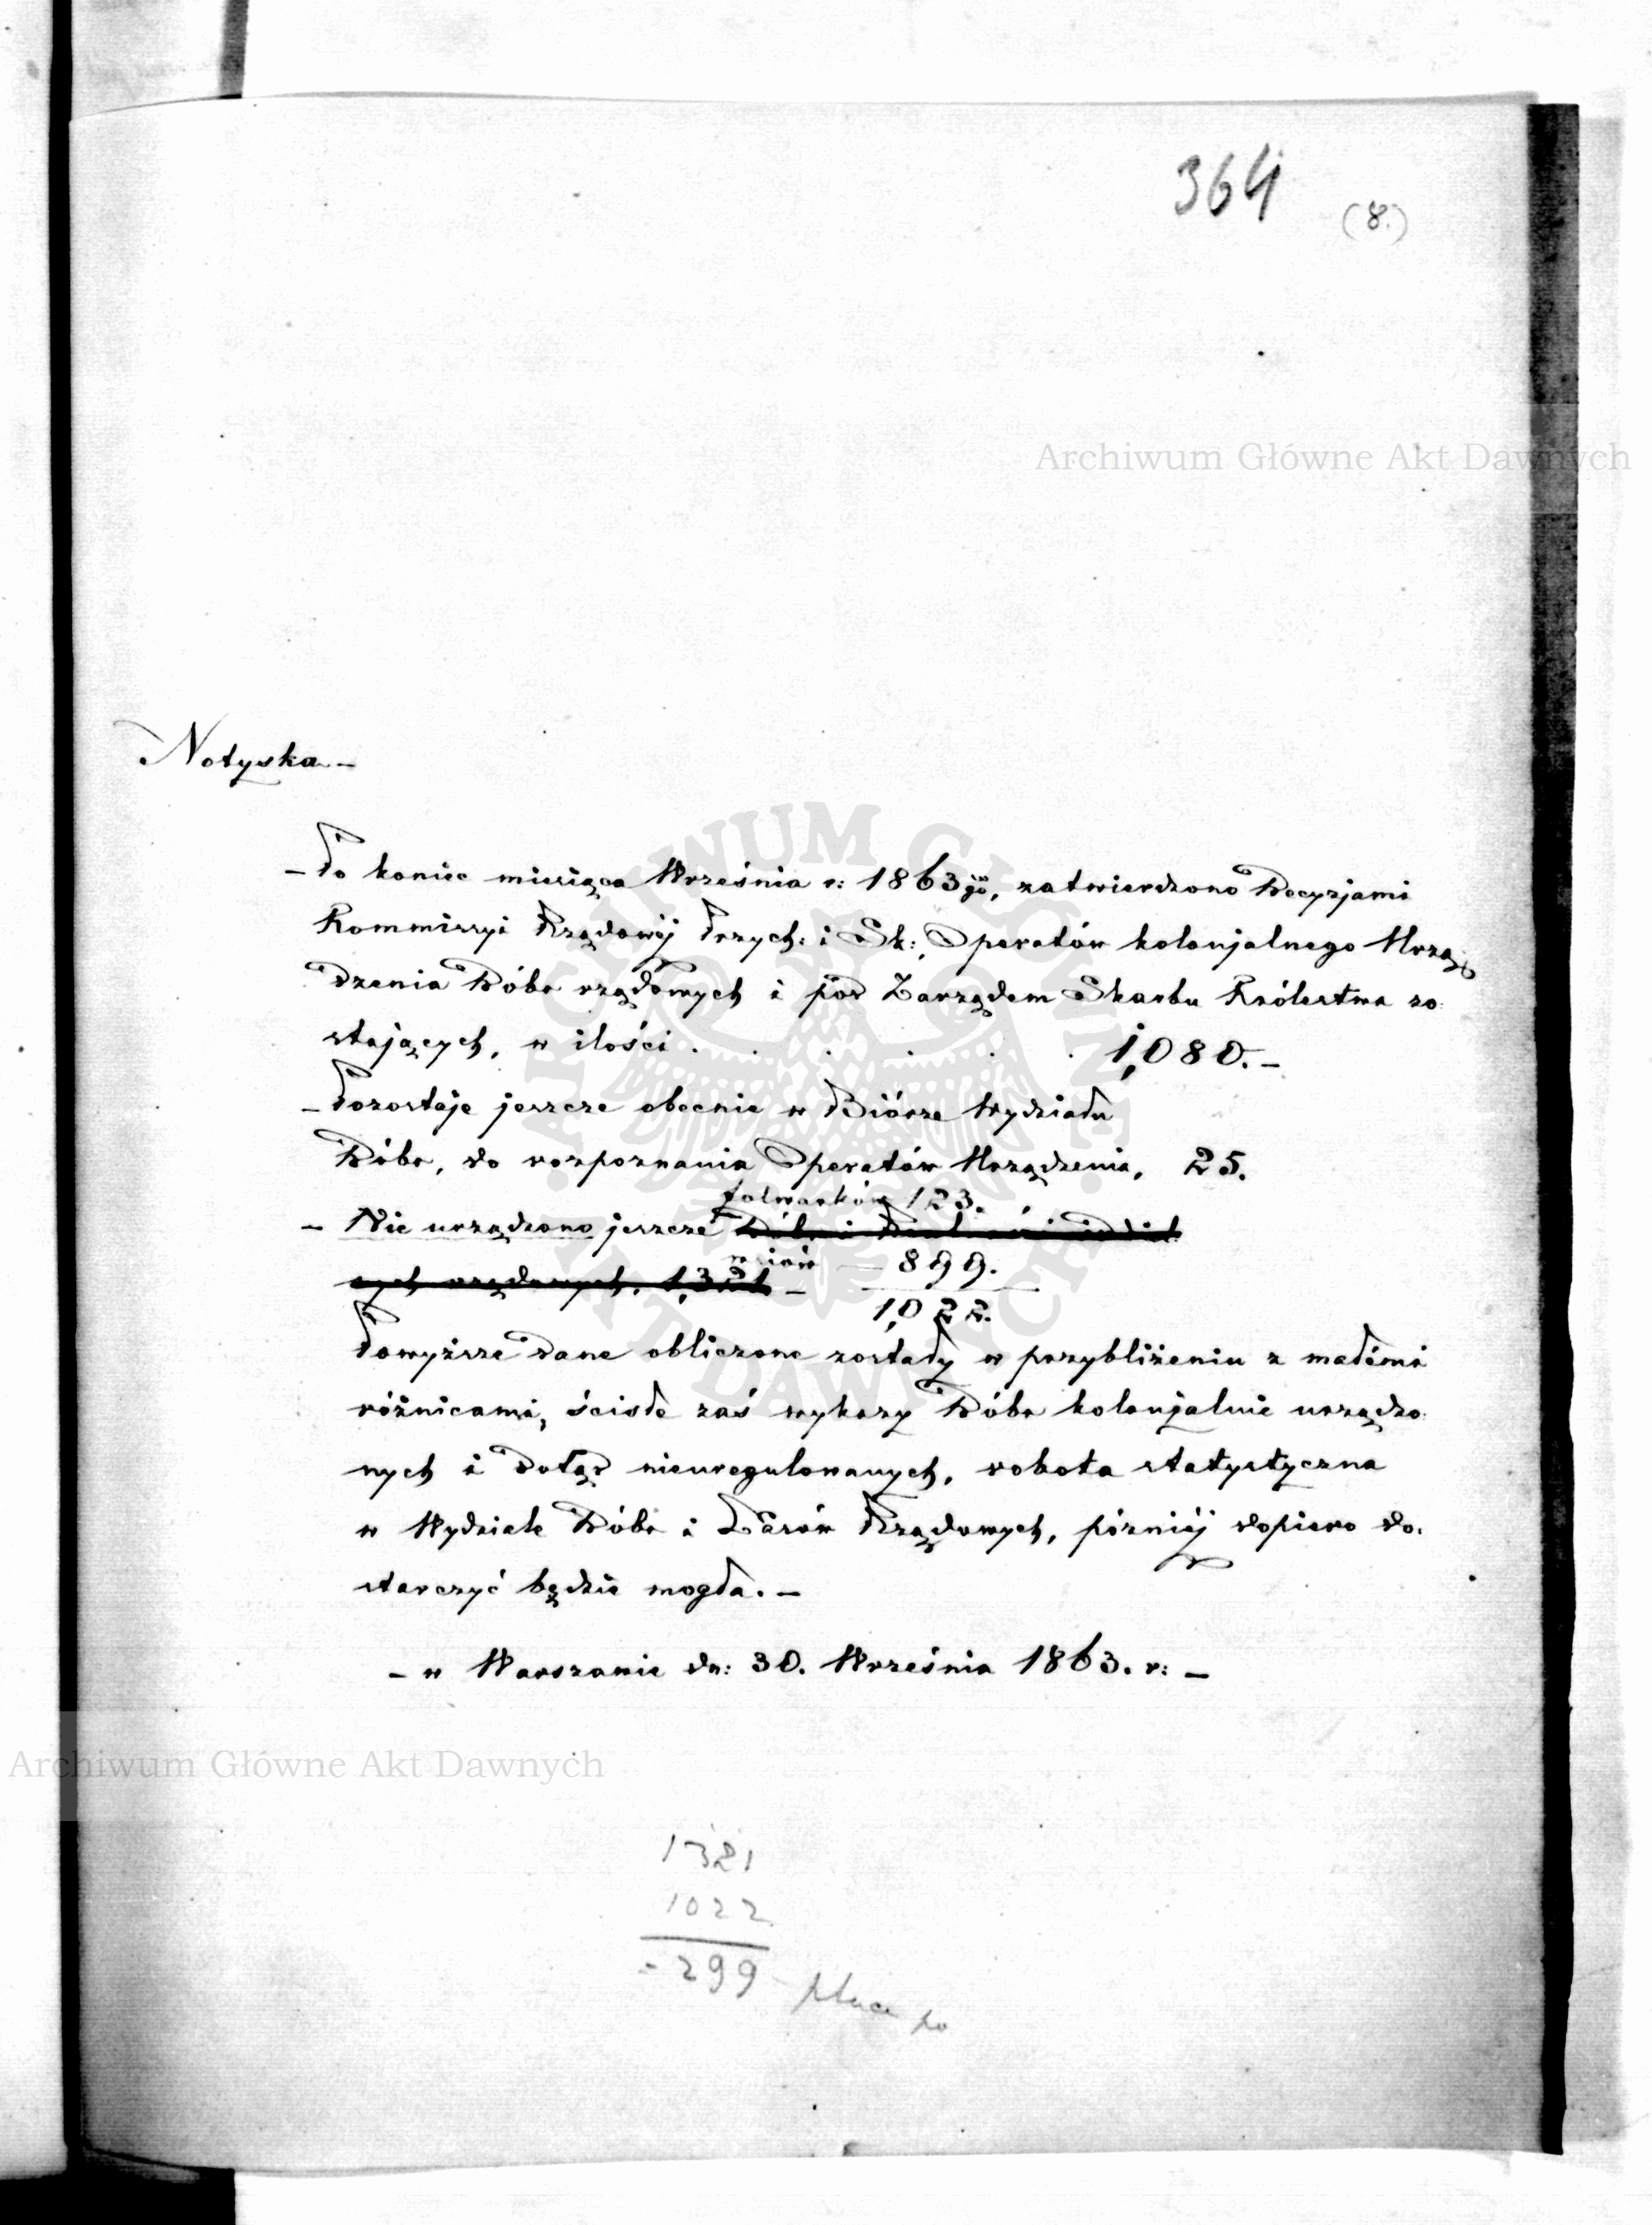 364 (8.)
Archiwum Główne Akt Dawnych
Notyska –
– Po koniec miesiąca Września r: 1863 go, zatwierdzono Decyzjami
Kommissyi Rządowéj Przych: i Sk:, Operatów kolonjalnego Urzą-
dzenia Dóbr rządowych i pod Zarządem Skarbu Królestwa zo-
stających, w ilości . . . . . . 1,080. –
– Pozostaje jeszcze obecnie w Biórze Wydziału
Dóbr, do rozpoznania Operatów Urządzenia, 25.
folwarków 123.
– Nie urządzono jeszcze
wsiów — 899.
rządowych, 1,321 –
1,022.
Powyższe dane obliczone zostały w przybliżeniu z małémi
różnicami, ścisłe zaś wykazy Dóbr kolonjalnie urządzo-
nych i dotąd nieuregulowanych, robota statystyczna
w Wydziale Dóbr i Lasów Rządowych, późniéj dopiero do-
starczyć będzie mogła. –
– w Warszawie dn: 30. Września 1863. r: –
Archiwum Główne Akt Dawnych
1321
1022
- 299
ARCHIWUM GŁÓWNE AKT DAWNYCH